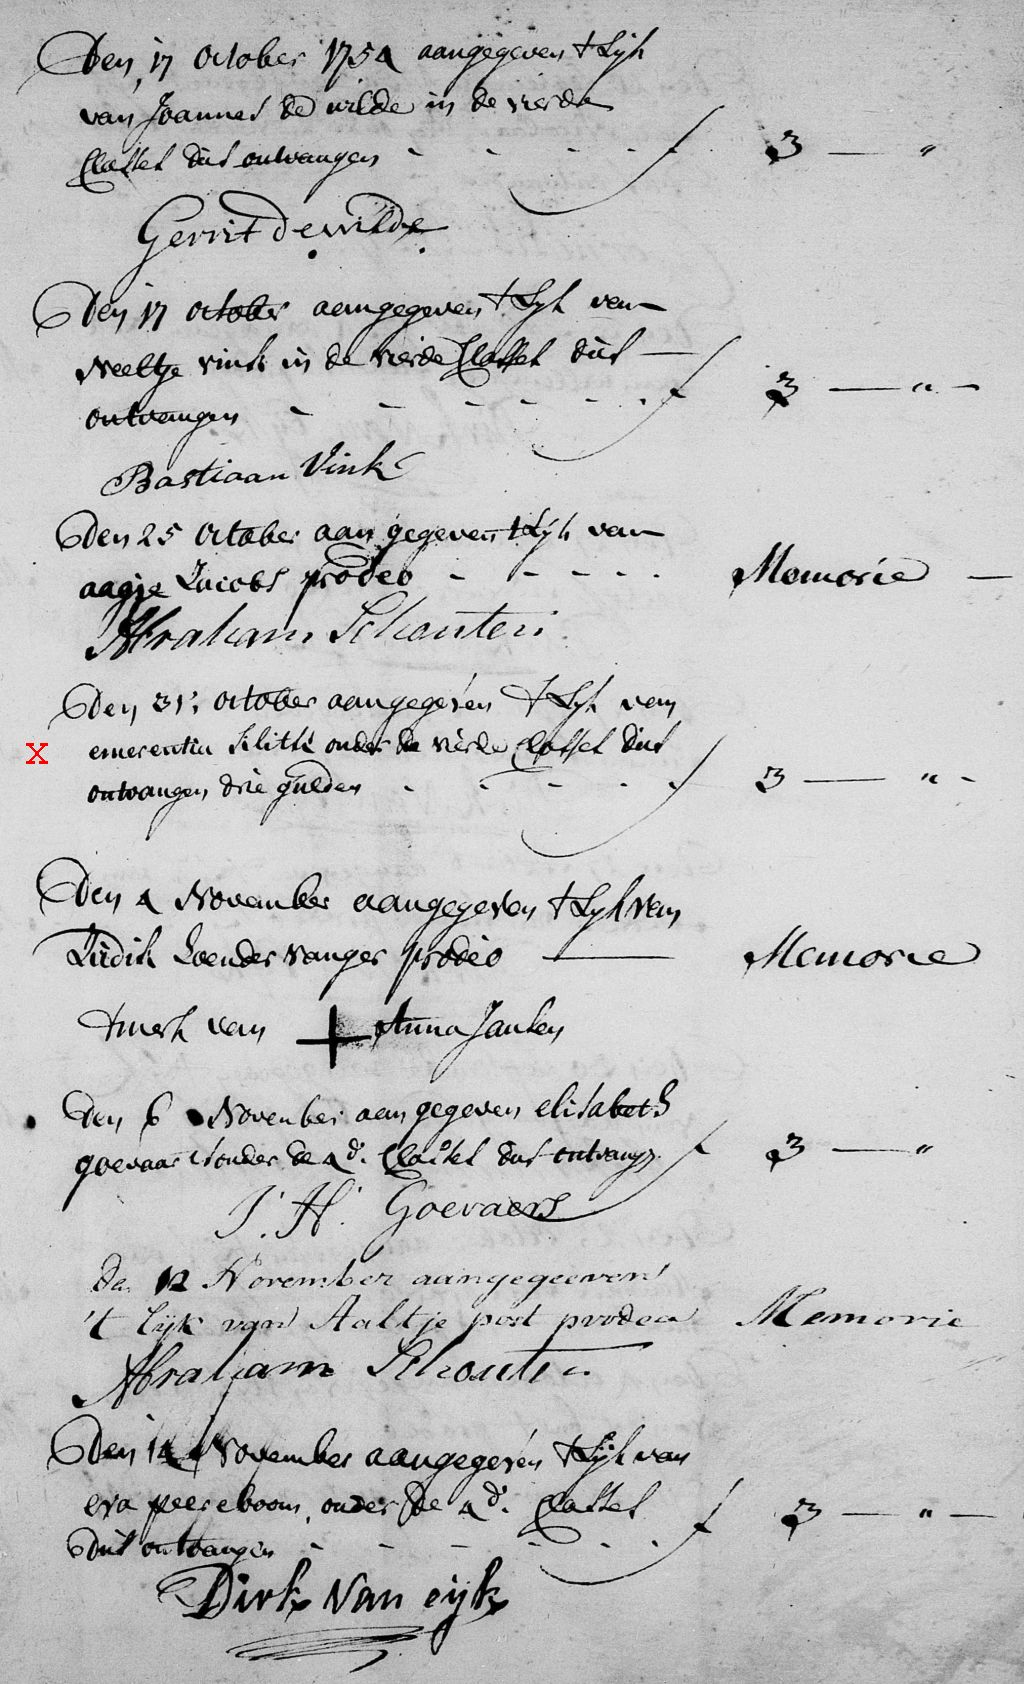 Den 17 October 1754 aangegeven t Lijk
van Joannes de wilde in de vierde
Classes dus ontvangen - - - - - f 3 — "
Gerrit de wilde
Den 17 October aengegeven t Lyk van
Neeltje vink in de vierde Classes dus
ontvangen - - - - - - f 3 — " —
Bastiaan Vink
Den 25 October aan gegeven t Lijk van
aagje Jacobs prodeo - - - - - Memorie —
Abraham Schouten
Den 31: October aangegeven t Lijk van
X emerentia onder de vierde Classes dus
ontvangen drie gulden - - - - - f 3 — " -
Den 4 November aangegeven t Lyk van
prodeo — Memorie
t merk van + Anna Jansen
Den 6 November aen gegeven elisabeth
goevaars onder de 4d. Classes dus ontvangn. f 3 — "
J. H. Goevaers
den 12 November aangegeeven
't Lijk van Aaltje post prodeo Memorie
Abraham Schouten
Den 14 November aangegeven t Lijk van
eva peereboom onder de 4d. Classes
dus ontvangen - - - - - f 3 — " —
Dirk Van eijk